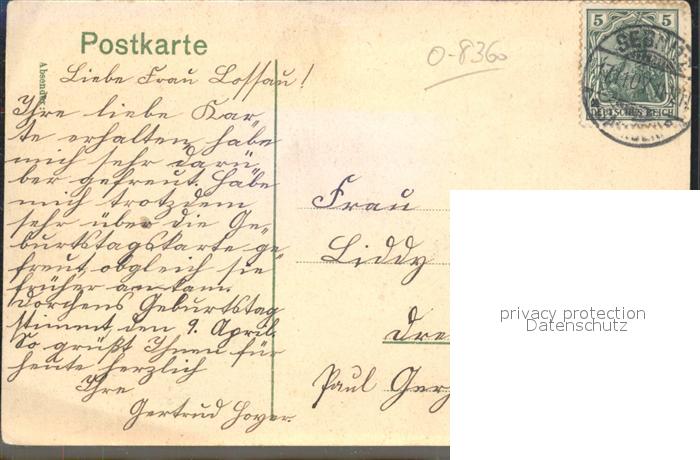 Postkarte
Absender:
0-8360
5 5
SEBNITZ
DEUTSCHES REICH
Liebe Frau Lossau!
Ihre liebe Kar-
te erhalten, habe
mich sehr darü-
ber gefreut. Habe
mich trotzdem
sehr über die Ge-
burtstagskarte ge-
freut, obgleich sie
früher ankam.
Dorchens Geburtstag
stimmt, den 9. April.
So grüßt Ihnen für
heute herzlich
Ihre
Gertrud Hoyer.
Frau
Liddy
Dre
Paul Ger
privacy protection
Datenschutz